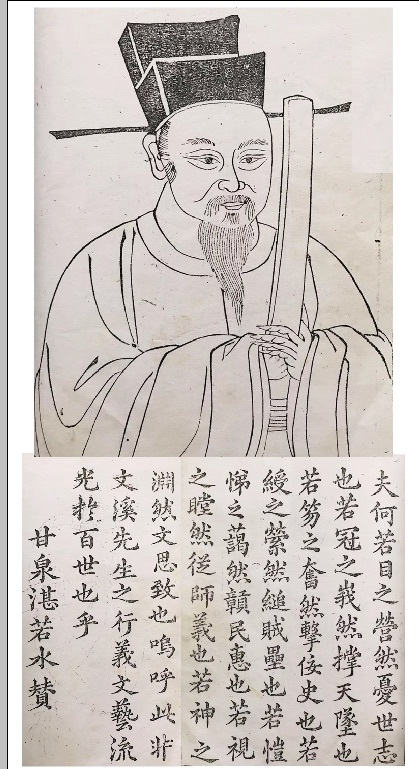 夫何若目之營然憂世志
也若冠之峩然撑天墜也
若笏之奮然擊佞史也若
綬之縈然縋賊壘也若愷
悌之藹然贛民惠也若視
之瞠然従師義也若神之
淵然文思致也嗚呼此非
文溪先生之行義文藝流
光扵百世也乎
甘泉湛若水賛